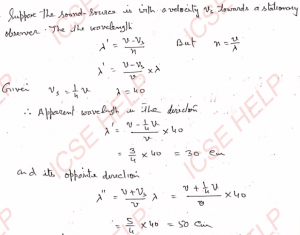 Suppose the sound source is with a velocity Vs towards a stationary
observer. The the wavelength
λ' = (v - vs)/n But n = v/λ
λ' = (v - vs)/v × λ
Given Vs = 1/4 v λ = 40
∴ Apparent wavelength in the direction
λ' = (v - 1/4 v)/v × 40
= 3/4 × 40 = 30 cm
and its opposite direction
λ'' = (v + vs)/v λ = (v + 1/4 v)/v × 40
= 5/4 × 40 = 50 cm
ICSE HELP